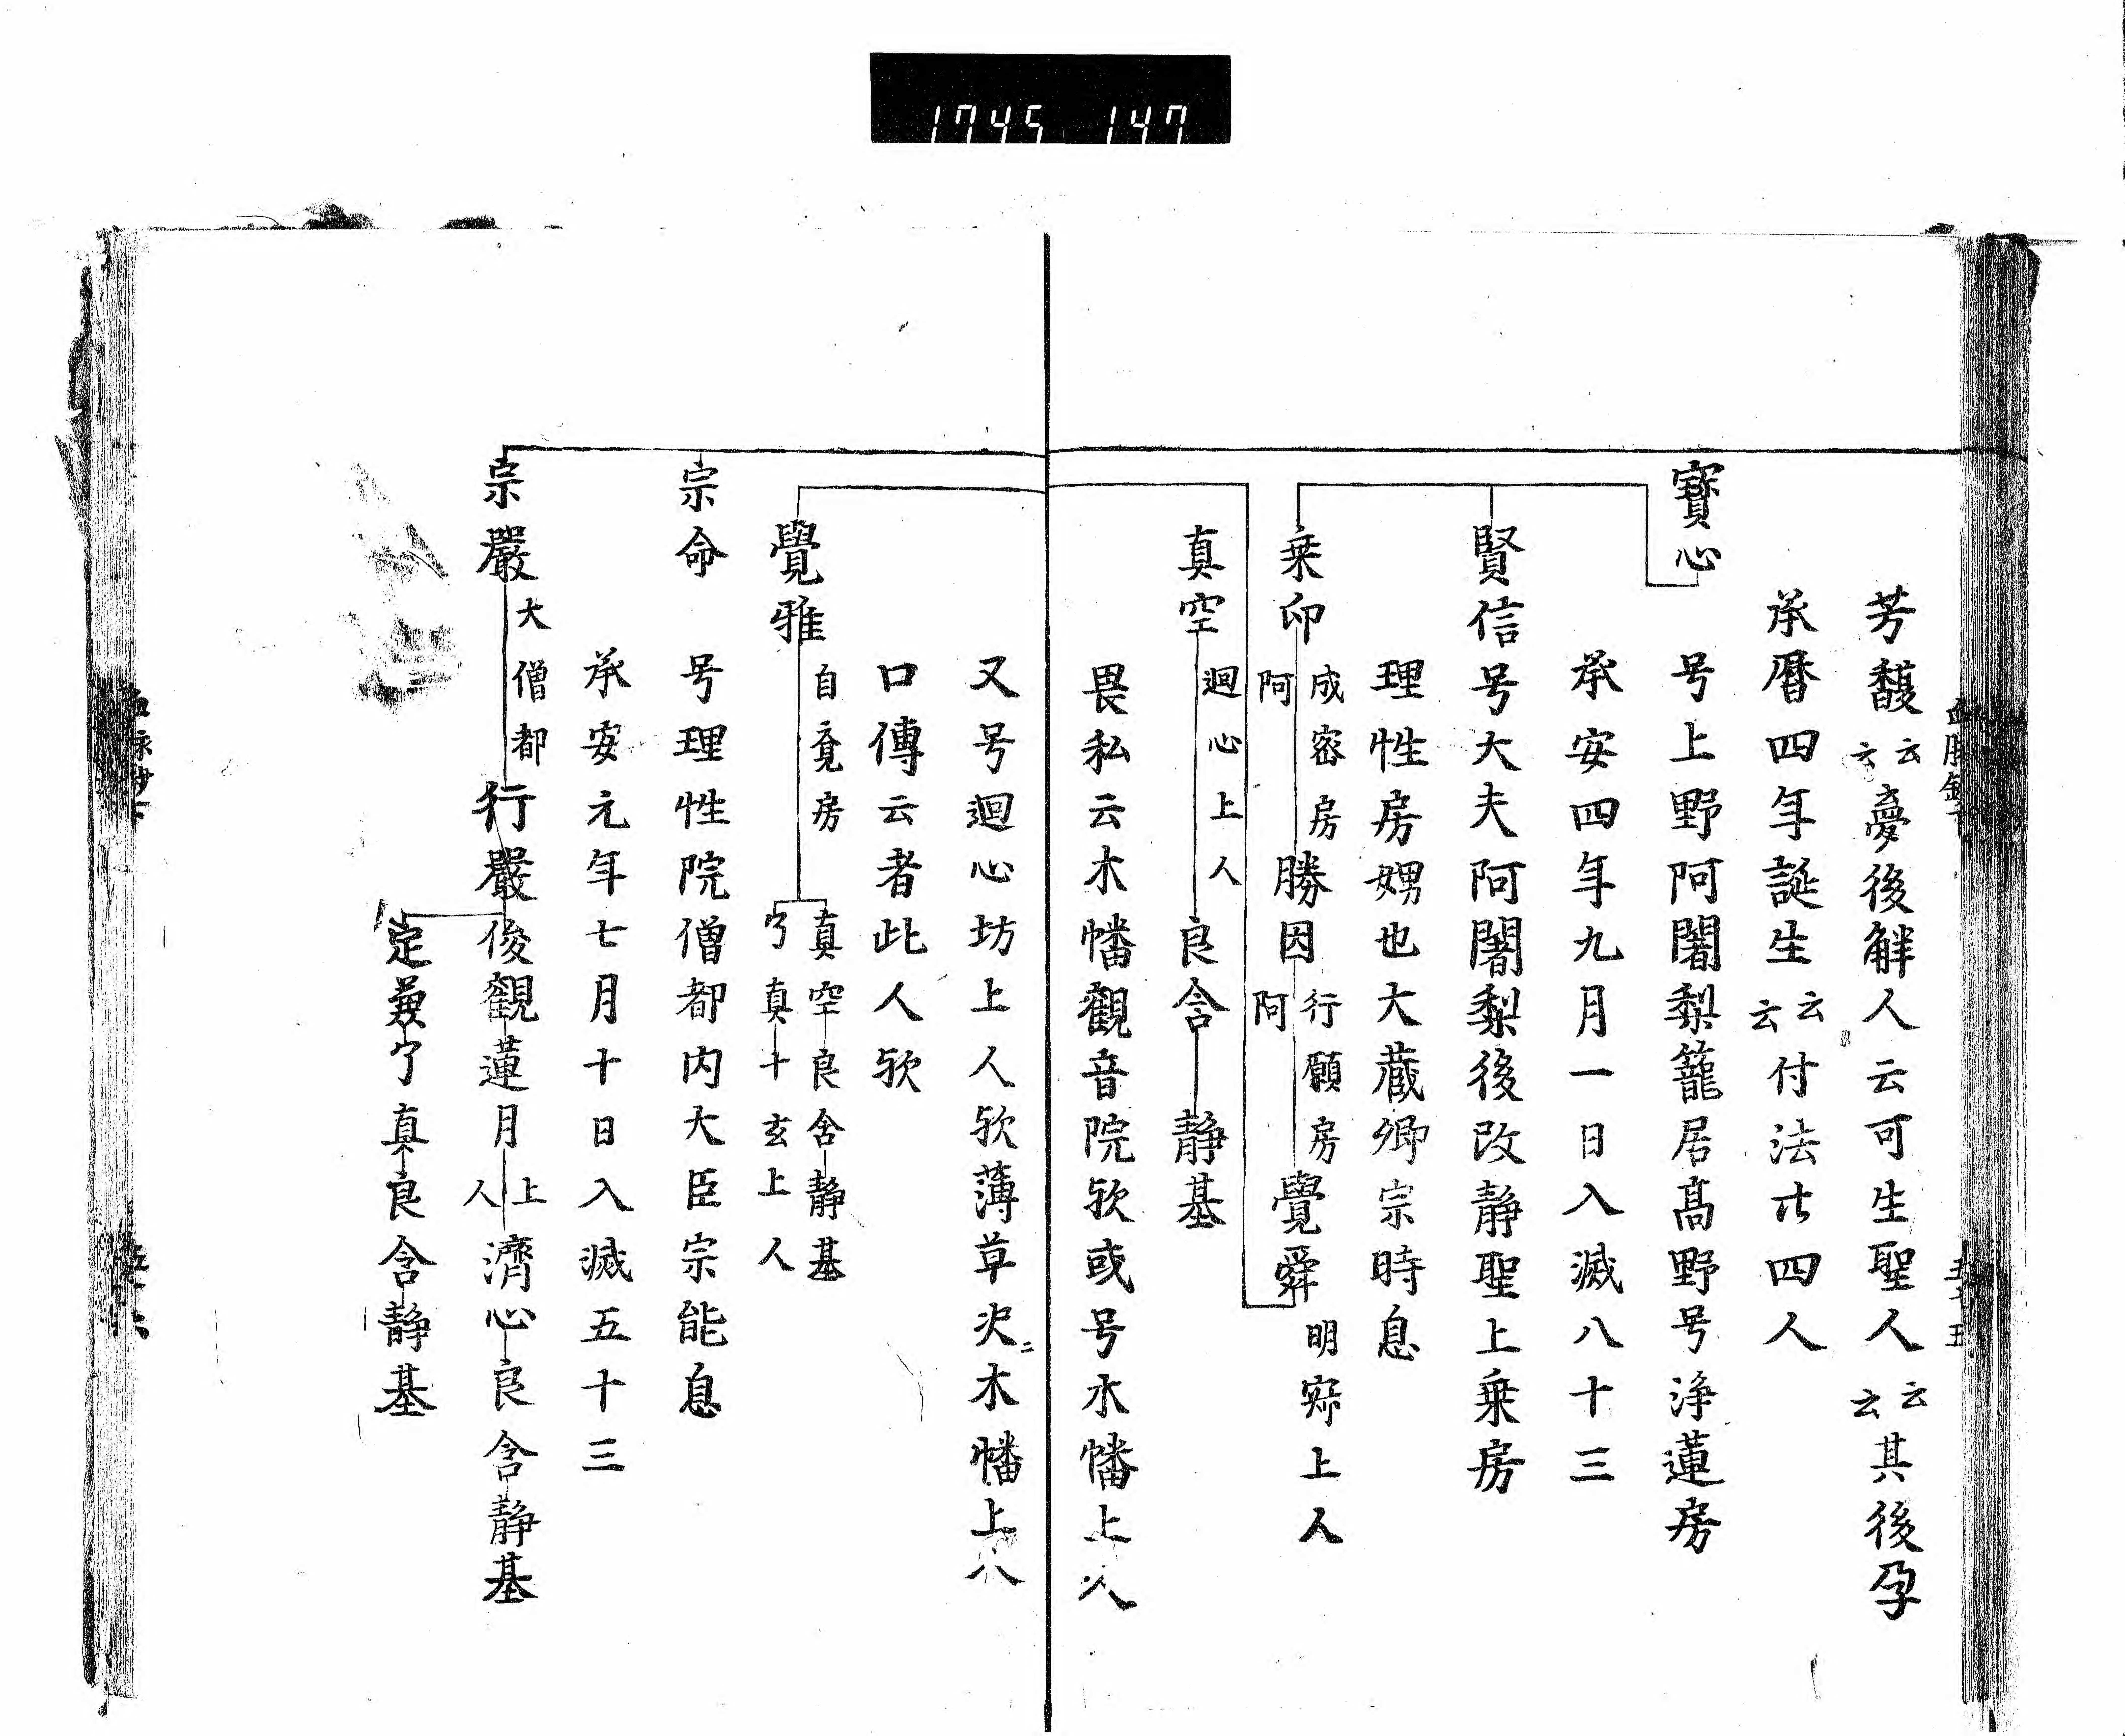 1745 147
芳馥云云夢後解人云可生聖人云云其後孕
承暦四年誕生云云付法廿四人
寶心
号上野阿闍梨籠居髙野号浄蓮房
承安四年九月一日入滅八十三
賢信号大夫阿闍梨後改静聖上乗房
理性房甥也大蔵卿宗時息
乗印 成密房 阿 勝因 行願房 阿 覺舜 明寂上人
真空 迴心上人 良含 静基
畏私云木幡觀音院欤或号木幡上人
又号迴心坊上人欤薄草决ニ木幡上人
口傳云者此人欤
覺雅 自寛房 真空 良含 静基
了真 十玄上人
宗命 号理性院僧都内大臣宗能息
承安元年七月十日入滅五十三
宗嚴 大僧都 行嚴 後觀 蓮月上人 濟心 良含 静基
定兼 了真 良含 静基